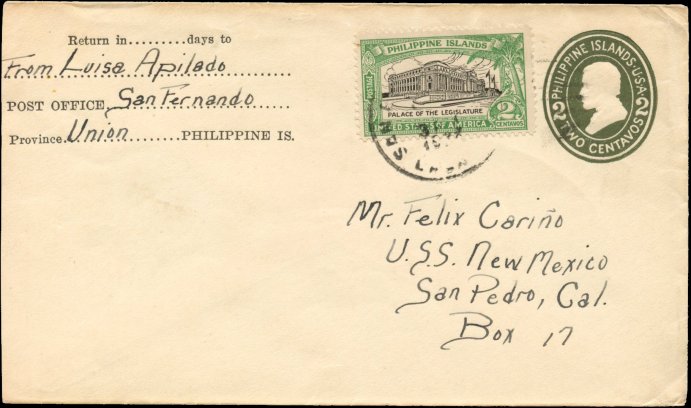 Return in.........days to
From Luisa Apilado
POST OFFICE San Fernando
Province Union PHILIPPINE IS.
PHILIPPINE ISLANDS
POSTAGE
PALACE OF THE LEGISLATURE
UNITED STATES OF AMERICA
2
CENTAVOS
PHILIPPINE ISLANDS·U.S.A.
2 2
TWO CENTAVOS
Mr. Felix Cariño
U.S.S. New Mexico
San Pedro, Cal.
Box 17